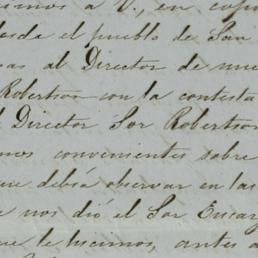 cimos a V., en copia
desde el pueblo de San
as al Director de nues
Robertson con la contesta
l Director Sor Robertson
mos convenientes sobre
que debía observar en las
e nos dió el Sor Encarg
que le hicimos, antes d